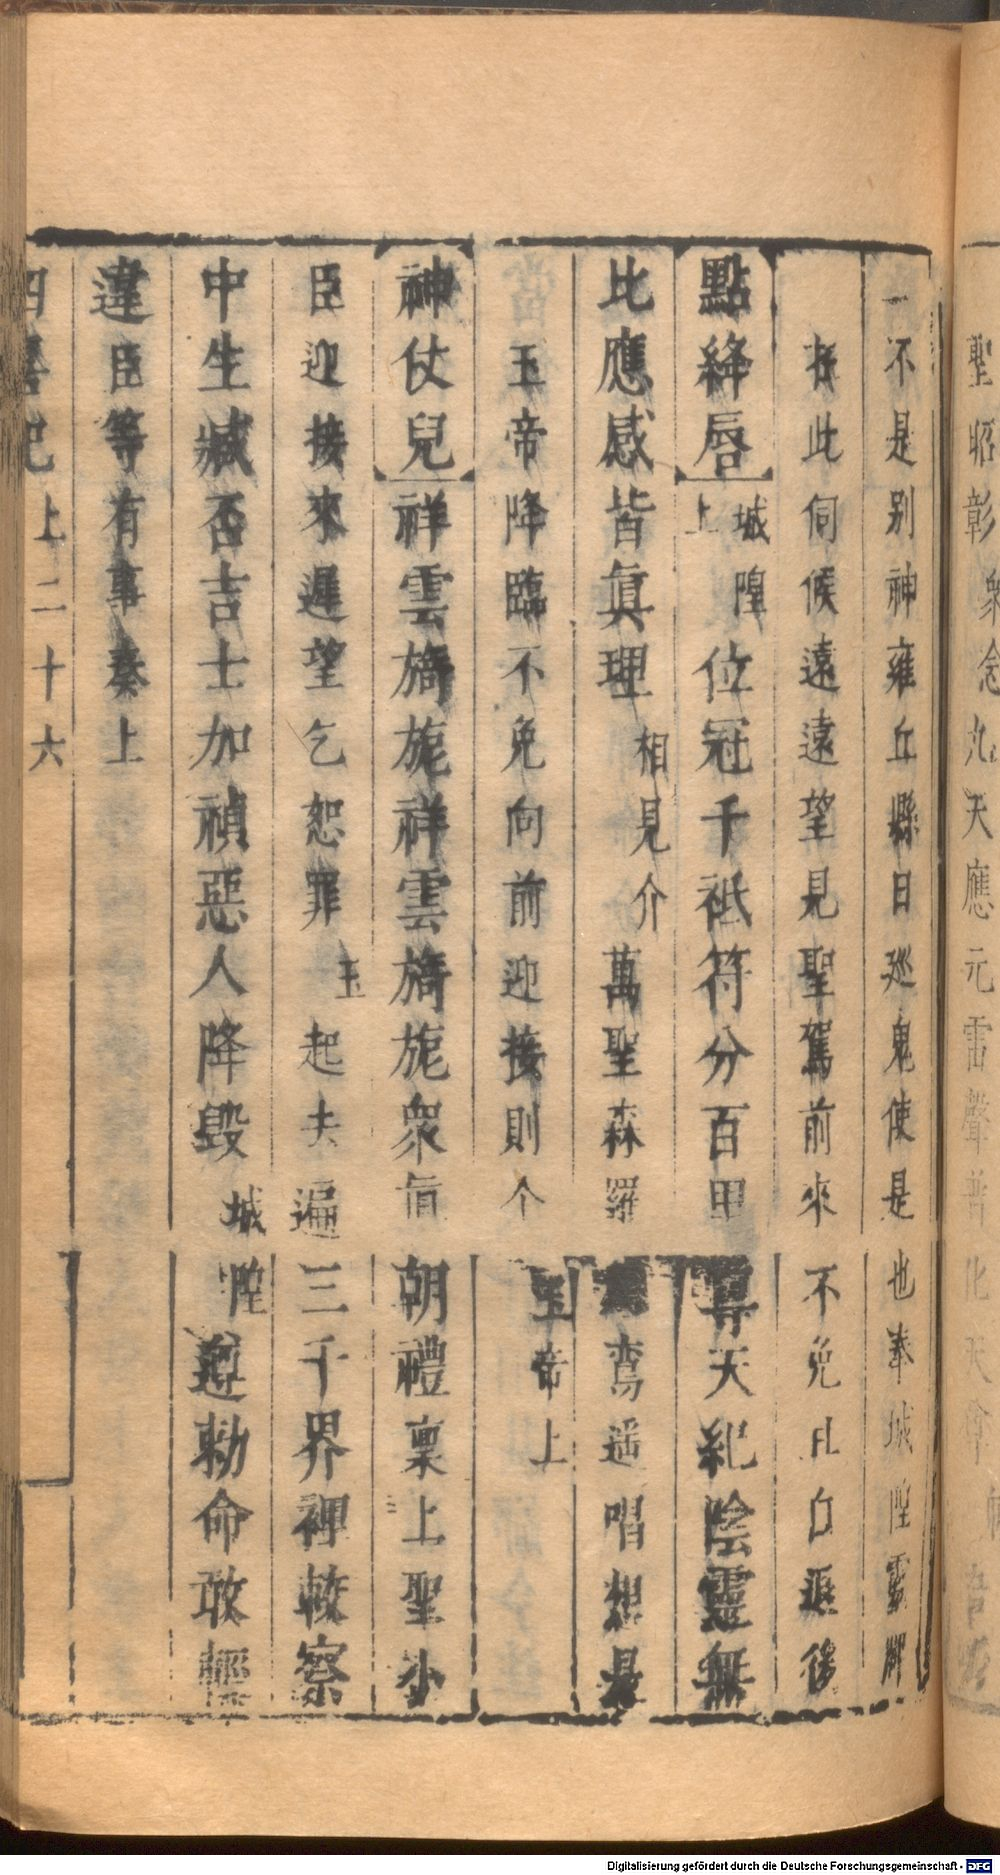 聖昭彰衆念九天應元雷聲普化天尊
一不是別神雍丘縣日巡鬼使是也奉城隍靈牌
在此伺候遠遠望見聖駕前來不免且自退後
點絳唇城隍上位冠千祇符分百甲尊天紀陰靈無
比應感皆眞理相見介萬聖森羅鸞遥唱想是
玉帝降臨不免向前迎接則个玉帝上
神仗兒祥雲旖旎祥雲旖旎衆眞朝禮稟上聖小
臣迎接來遲望乞恕罪玉起夫遍三千界裡較察
中生臧否吉士加禎惡人降毀城隍遵勅命敢輕
違臣等有事奏上
四喜記上二十六
Digitalisierung gefördert durch die Deutsche Forschungsgemeinschaft - DFG